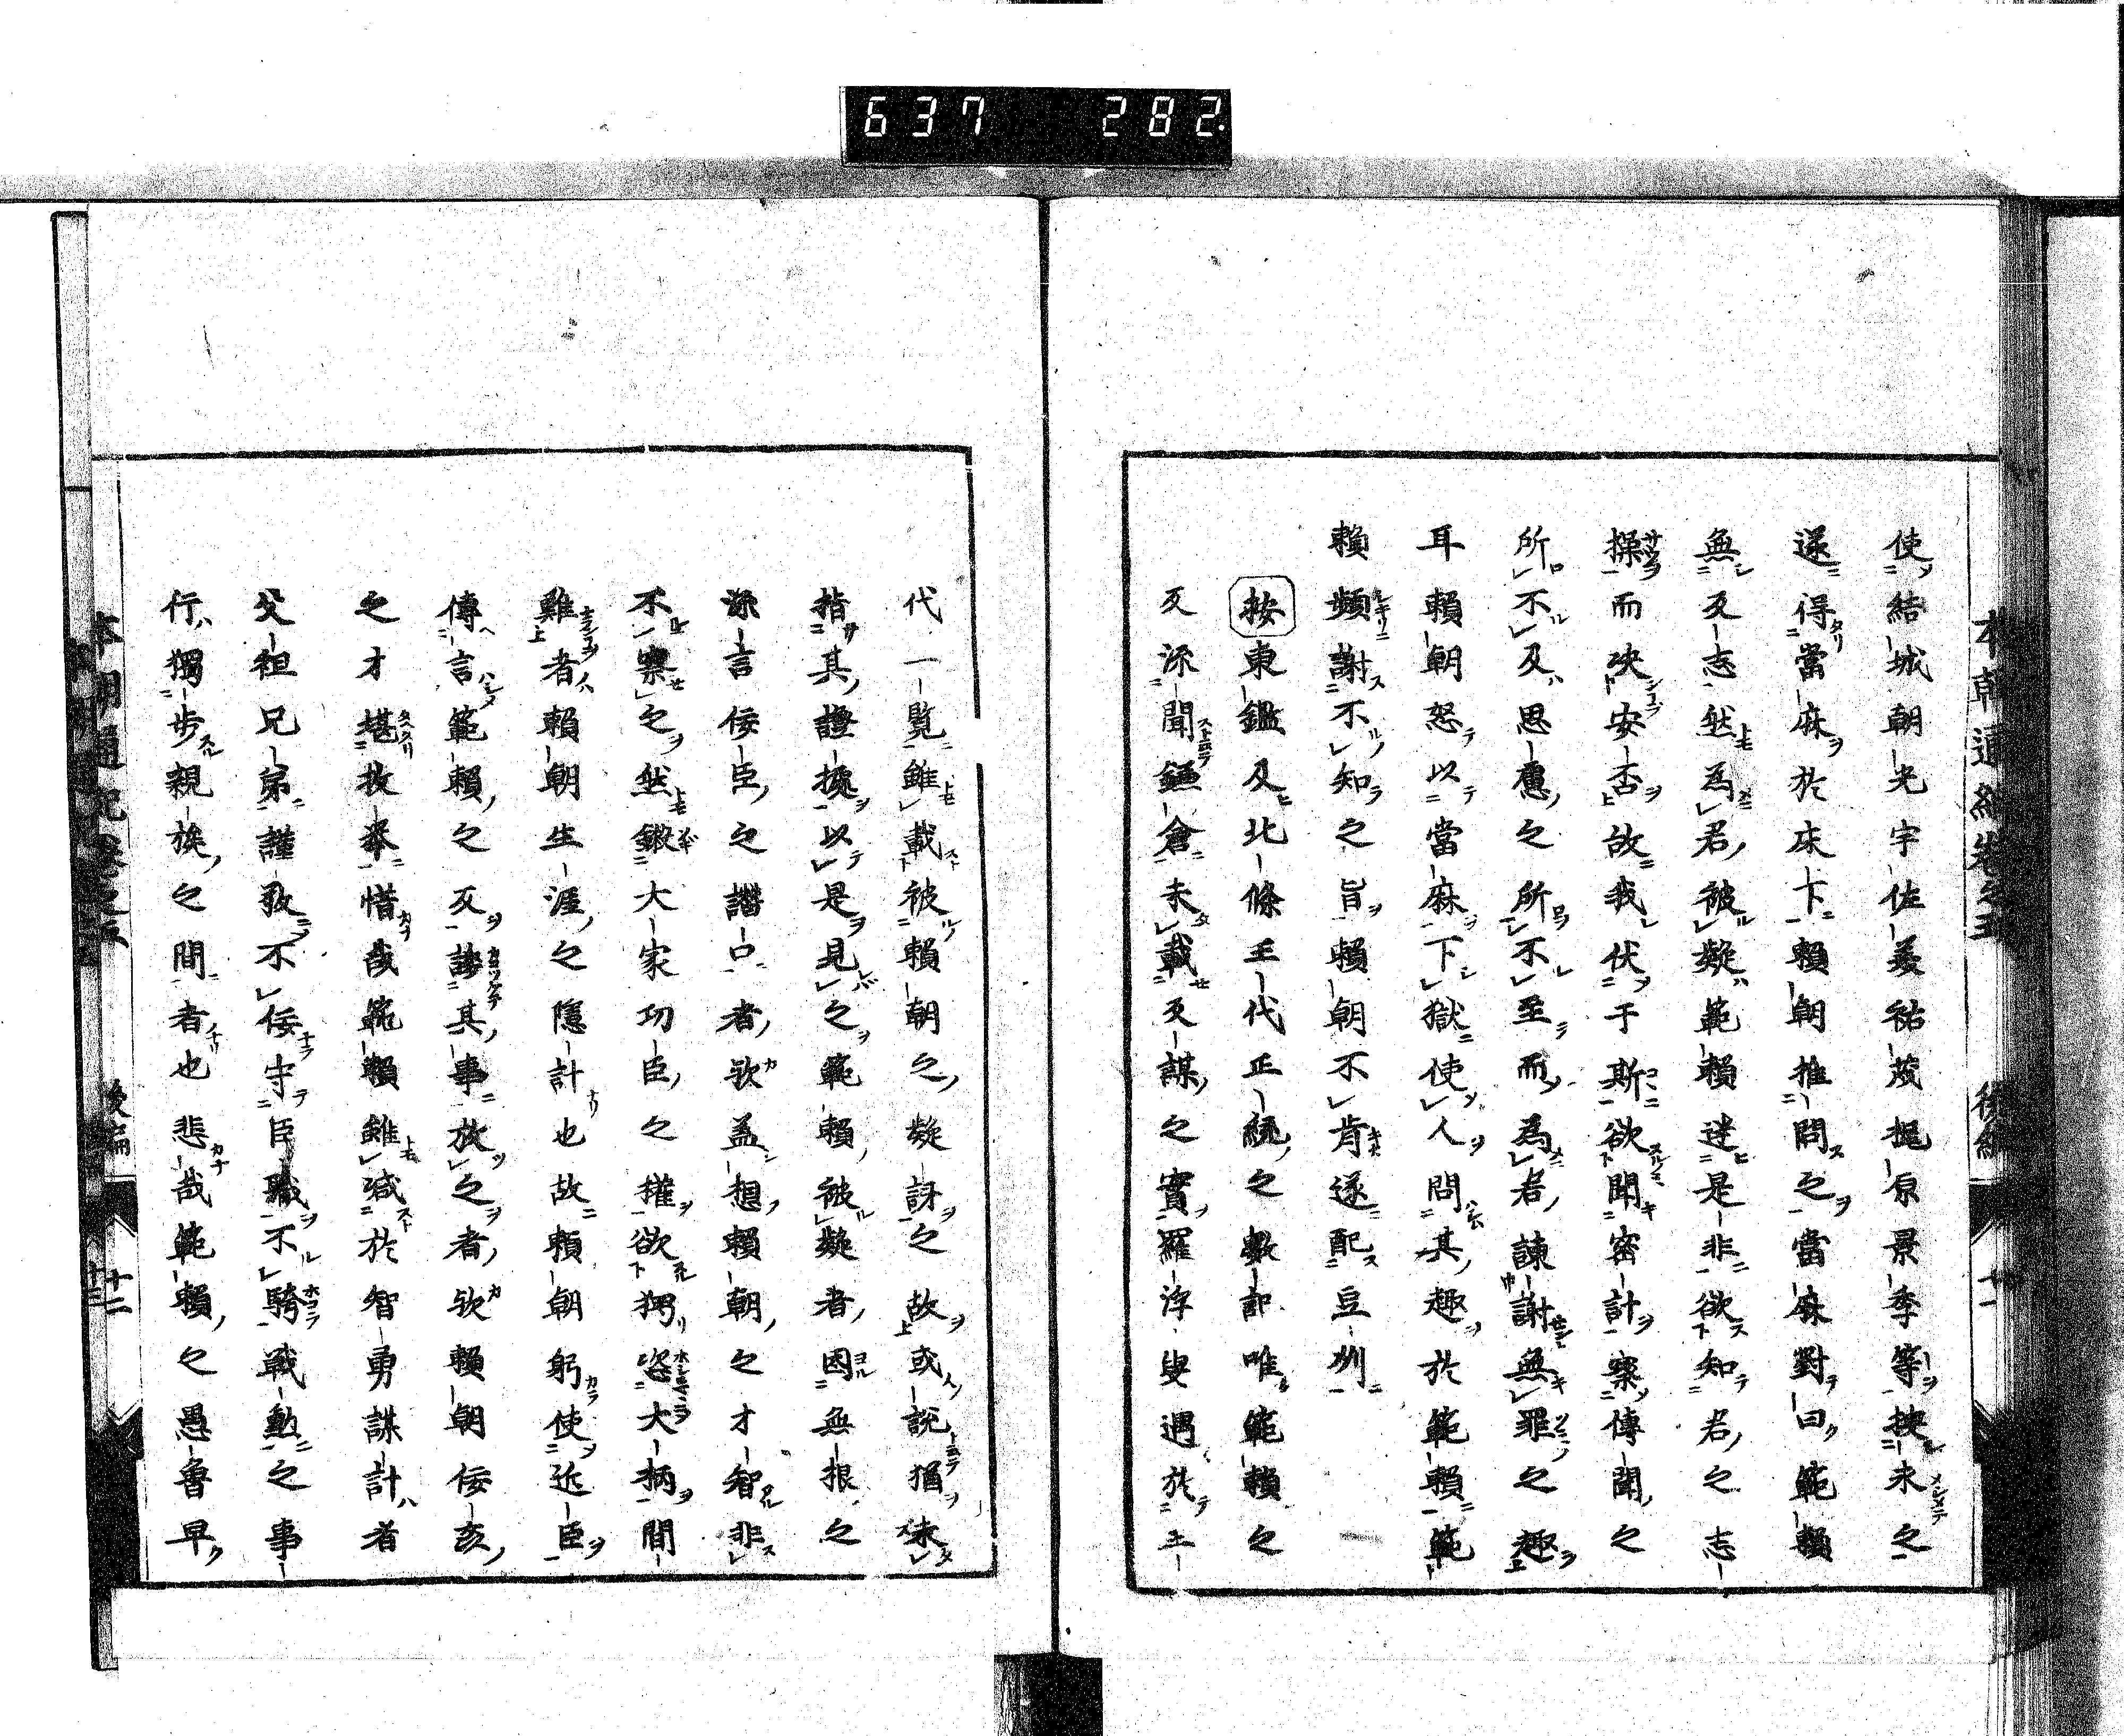 637 282
使結城朝光宇佐美祐茂梶原景季等捜求之
遂得當麻於床下賴朝推問之當麻對曰範賴
無反志然為君被疑範賴迷是非欲知君之志
操而決安否故我伏于斯欲聞密計察傳聞之
所不及思慮之所不至而為君諫謝無罪之趣
耳賴朝怒以當麻下獄使人問其趣於範賴範
賴頻謝不知之旨賴朝不肯遂配豆州
按東鑑及北條王代正統之數記唯範賴之
反流聞鎌倉未載反謀之實羅浮叟遇於王
代一覧雖載被賴朝之疑訝之故或說猶未
指其證據以是見之範賴被疑者因無根之
流言佞臣之譖口者歟盖想賴朝之才智非
不察之然鍛大家功臣之權欲獨恣大柄間
難者賴朝生涯之隱計也故賴朝躬使近臣
傳言範賴之反謗其事放之者歟賴朝佞亥
之才堪牧羣惜哉範賴雖減於智勇謀計者
父祖兄弟謹敬不佞守臣職不騎戰勳之事
行獨步親族之間者也悲哉範賴之愚魯早
本朝通紀卷之五
後編
十二